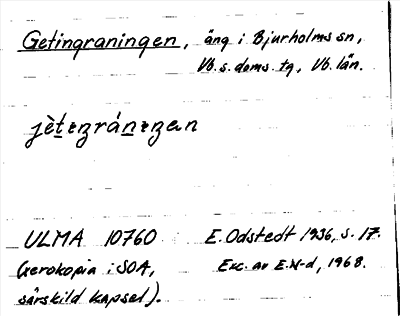 Getingraningen, äng i Bjurholms sn,
Vb. s. doms. tg, Vb. län.
jètıŋránıŋan
ULMA 10760 E. Odstedt 1936, s. 17.
(Xerokopia i SOA, Exc. av E.N-d, 1968.
särskild kapsel).